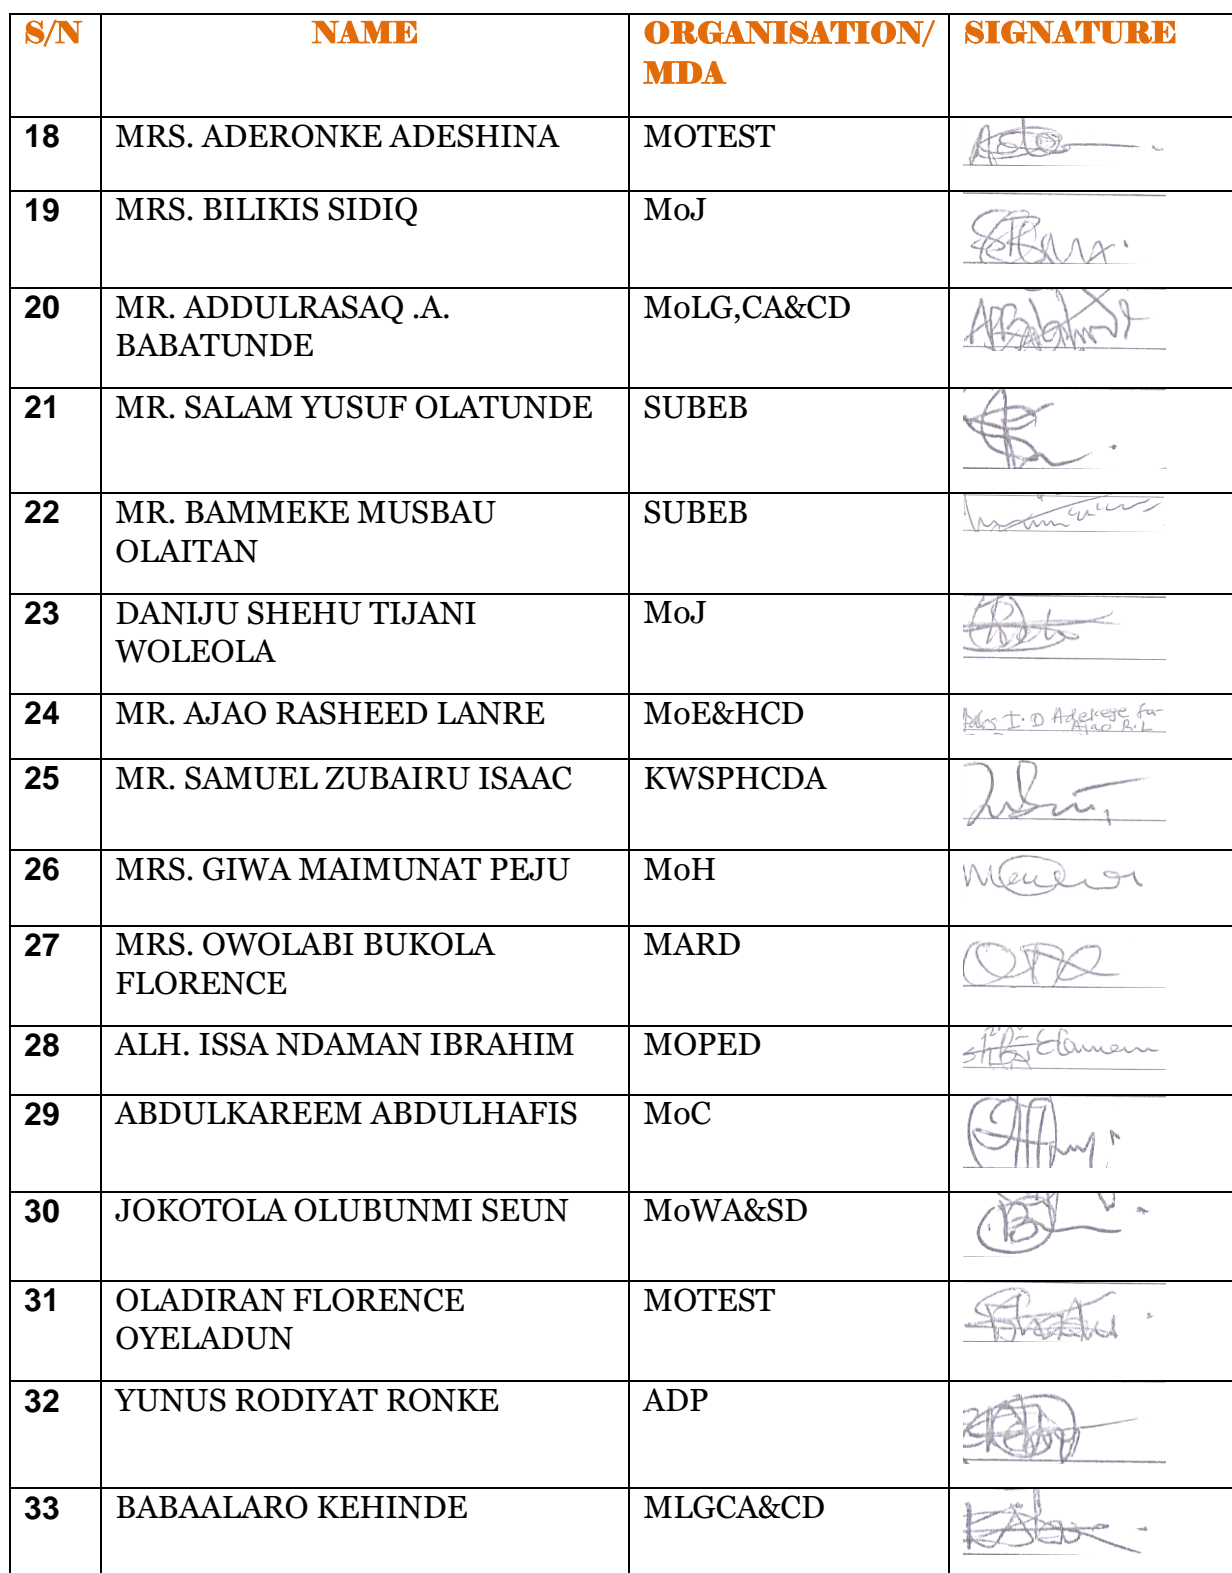 S/N NAME ORGANISATION/ SIGNATURE
MDA
18 MRS. ADERONKE ADESHINA MOTEST
19 MRS. BILIKIS SIDIQ MoJ
20 MR. ADDULRASAQ .A. MoLG,CA&CD
BABATUNDE
21 MR. SALAM YUSUF OLATUNDE SUBEB
22 MR. BAMMEKE MUSBAU SUBEB
OLAITAN
23 DANIJU SHEHU TIJANI MoJ
WOLEOLA
24 MR. AJAO RASHEED LANRE MoE&HCD Mrs I.D Adekeye for
Ajao R.L
25 MR. SAMUEL ZUBAIRU ISAAC KWSPHCDA
26 MRS. GIWA MAIMUNAT PEJU MoH
27 MRS. OWOLABI BUKOLA MARD
FLORENCE
28 ALH. ISSA NDAMAN IBRAHIM MOPED
29 ABDULKAREEM ABDULHAFIS MoC
30 JOKOTOLA OLUBUNMI SEUN MoWA&SD
31 OLADIRAN FLORENCE MOTEST
OYELADUN
32 YUNUS RODIYAT RONKE ADP
33 BABAALARO KEHINDE MLGCA&CD